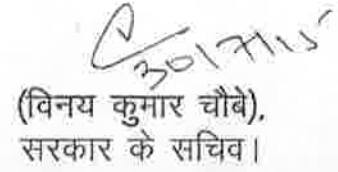 30/7/15
(विनय कुमार चौबे),
सरकार के सचिव।